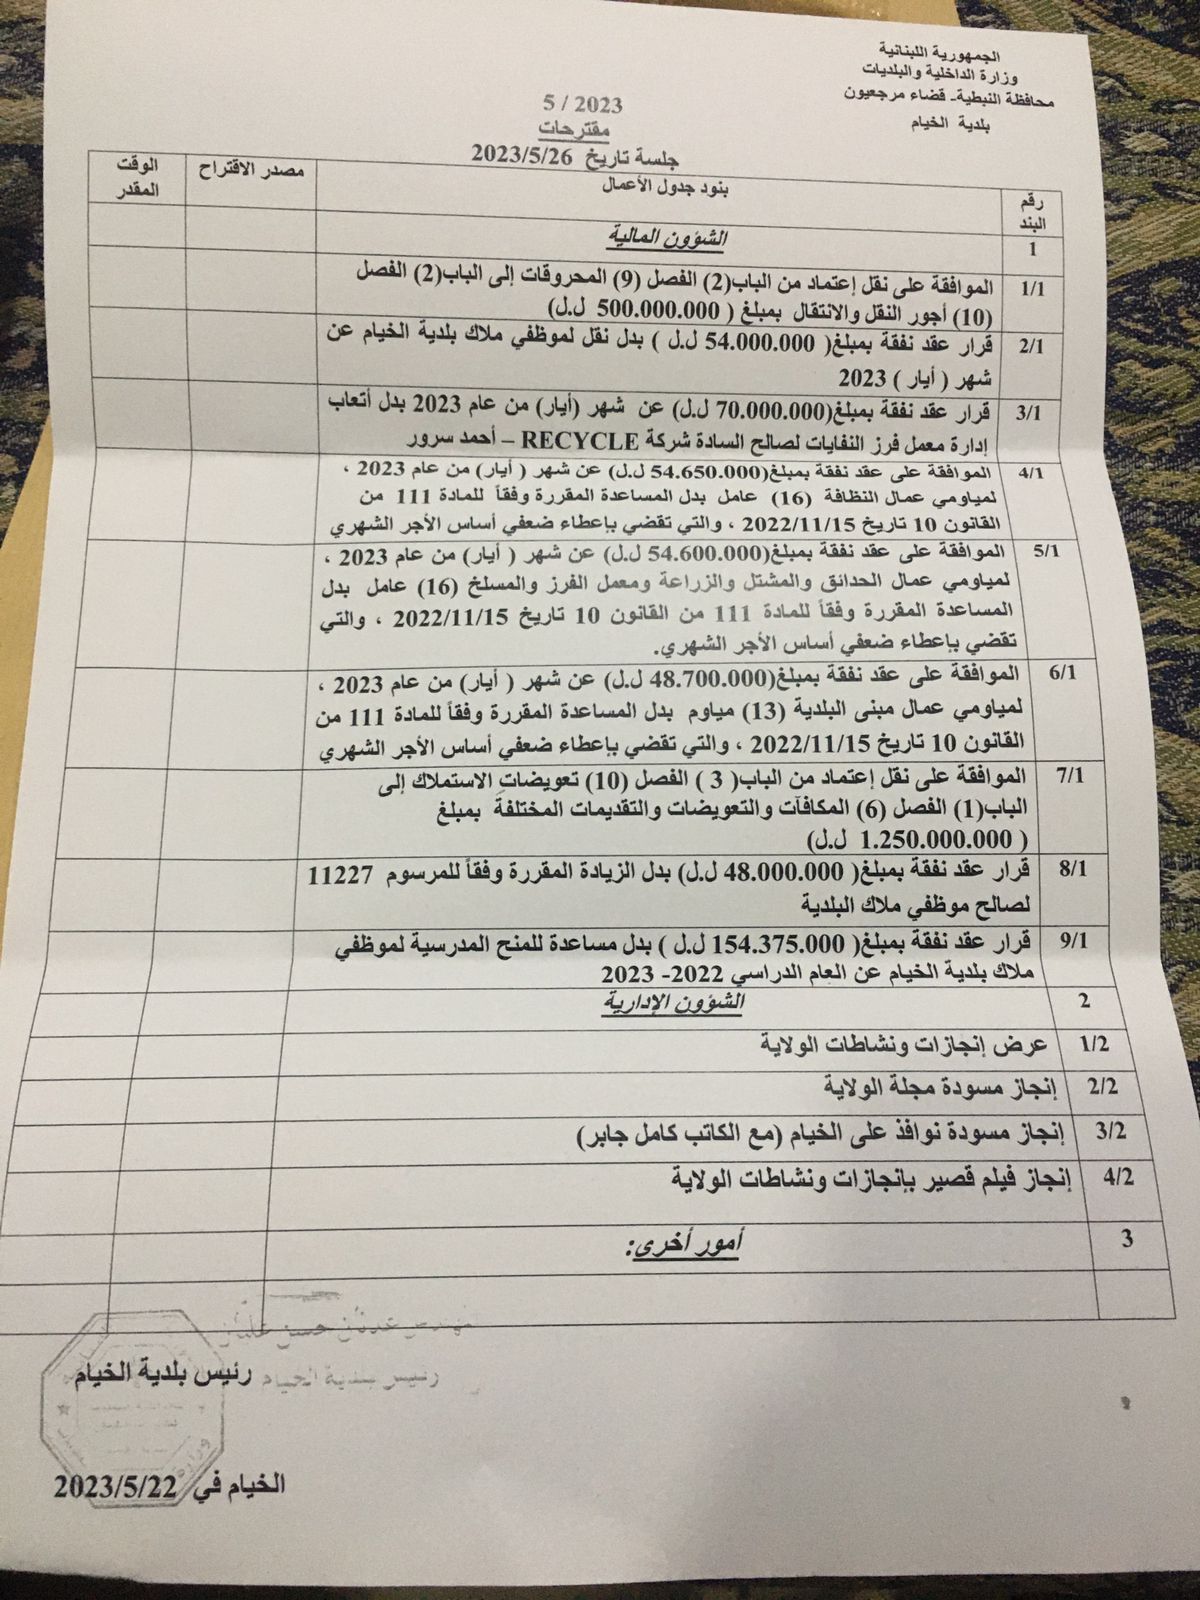 الجمهورية اللبنانية
وزارة الداخلية والبلديات
محافظة النبطية- قضاء مرجعيون
بلدية الخيام
5 / 2023
مقترحات
جلسة تاريخ 2023/5/26
رقم البند
بنود جدول الأعمال
مصدر الاقتراح
الوقت المقدر
1
الشؤون المالية
1/1
الموافقة على نقل إعتماد من الباب(2) الفصل (9) المحروقات إلى الباب(2) الفصل
(10) أجور النقل والانتقال بمبلغ ( 500.000.000 ل.ل)
2/1
قرار عقد نفقة بمبلغ( 54.000.000 ل.ل ) بدل نقل لموظفي ملاك بلدية الخيام عن
شهر ( أيار ) 2023
3/1
قرار عقد نفقة بمبلغ(70.000.000 ل.ل) عن شهر (أيار) من عام 2023 بدل أتعاب
إدارة معمل فرز النفايات لصالح السادة شركة RECYCLE – أحمد سرور
4/1
الموافقة على عقد نفقة بمبلغ(54.650.000 ل.ل) عن شهر ( أيار) من عام 2023 ،
لمياومي عمال النظافة (16) عامل بدل المساعدة المقررة وفقاً للمادة 111 من
القانون 10 تاريخ 2022/11/15 ، والتي تقضي بإعطاء ضعفي أساس الأجر الشهري
5/1
الموافقة على عقد نفقة بمبلغ(54.600.000 ل.ل) عن شهر ( أيار) من عام 2023 ،
لمياومي عمال الحدائق والمشتل والزراعة ومعمل الفرز والمسلخ (16) عامل بدل
المساعدة المقررة وفقاً للمادة 111 من القانون 10 تاريخ 2022/11/15 ، والتي
تقضي بإعطاء ضعفي أساس الأجر الشهري.
6/1
الموافقة على عقد نفقة بمبلغ(48.700.000 ل.ل) عن شهر ( أيار) من عام 2023 ،
لمياومي عمال مبنى البلدية (13) مياوم بدل المساعدة المقررة وفقاً للمادة 111 من
القانون 10 تاريخ 2022/11/15 ، والتي تقضي بإعطاء ضعفي أساس الأجر الشهري
7/1
الموافقة على نقل إعتماد من الباب( 3 ) الفصل (10) تعويضات الاستملاك إلى
الباب(1) الفصل (6) المكافآت والتعويضات والتقديمات المختلفة بمبلغ
( 1.250.000.000 ل.ل)
8/1
قرار عقد نفقة بمبلغ( 48.000.000 ل.ل) بدل الزيادة المقررة وفقاً للمرسوم 11227
لصالح موظفي ملاك البلدية
9/1
قرار عقد نفقة بمبلغ( 154.375.000 ل.ل ) بدل مساعدة للمنح المدرسية لموظفي
ملاك بلدية الخيام عن العام الدراسي 2022- 2023
2
الشؤون الإدارية
1/2
عرض إنجازات ونشاطات الولاية
2/2
إنجاز مسودة مجلة الولاية
3/2
إنجاز مسودة نوافذ على الخيام (مع الكاتب كامل جابر)
4/2
إنجاز فيلم قصير بإنجازات ونشاطات الولاية
3
أمور أخرى:
عدنان حسن عليان
رئيس بلدية الخيام
رئيس بلدية الخيام
الخيام في 2023/5/22